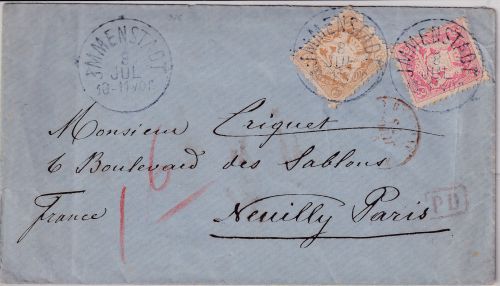 IMMENSTADT
8
JUL
10-11 Vor.
IMMENSTADT
8
JUL
IMMENSTADT
8
JUL
Monsieur Criquet
6 Boulevard des Sablons
Neuilly Paris
France
PD